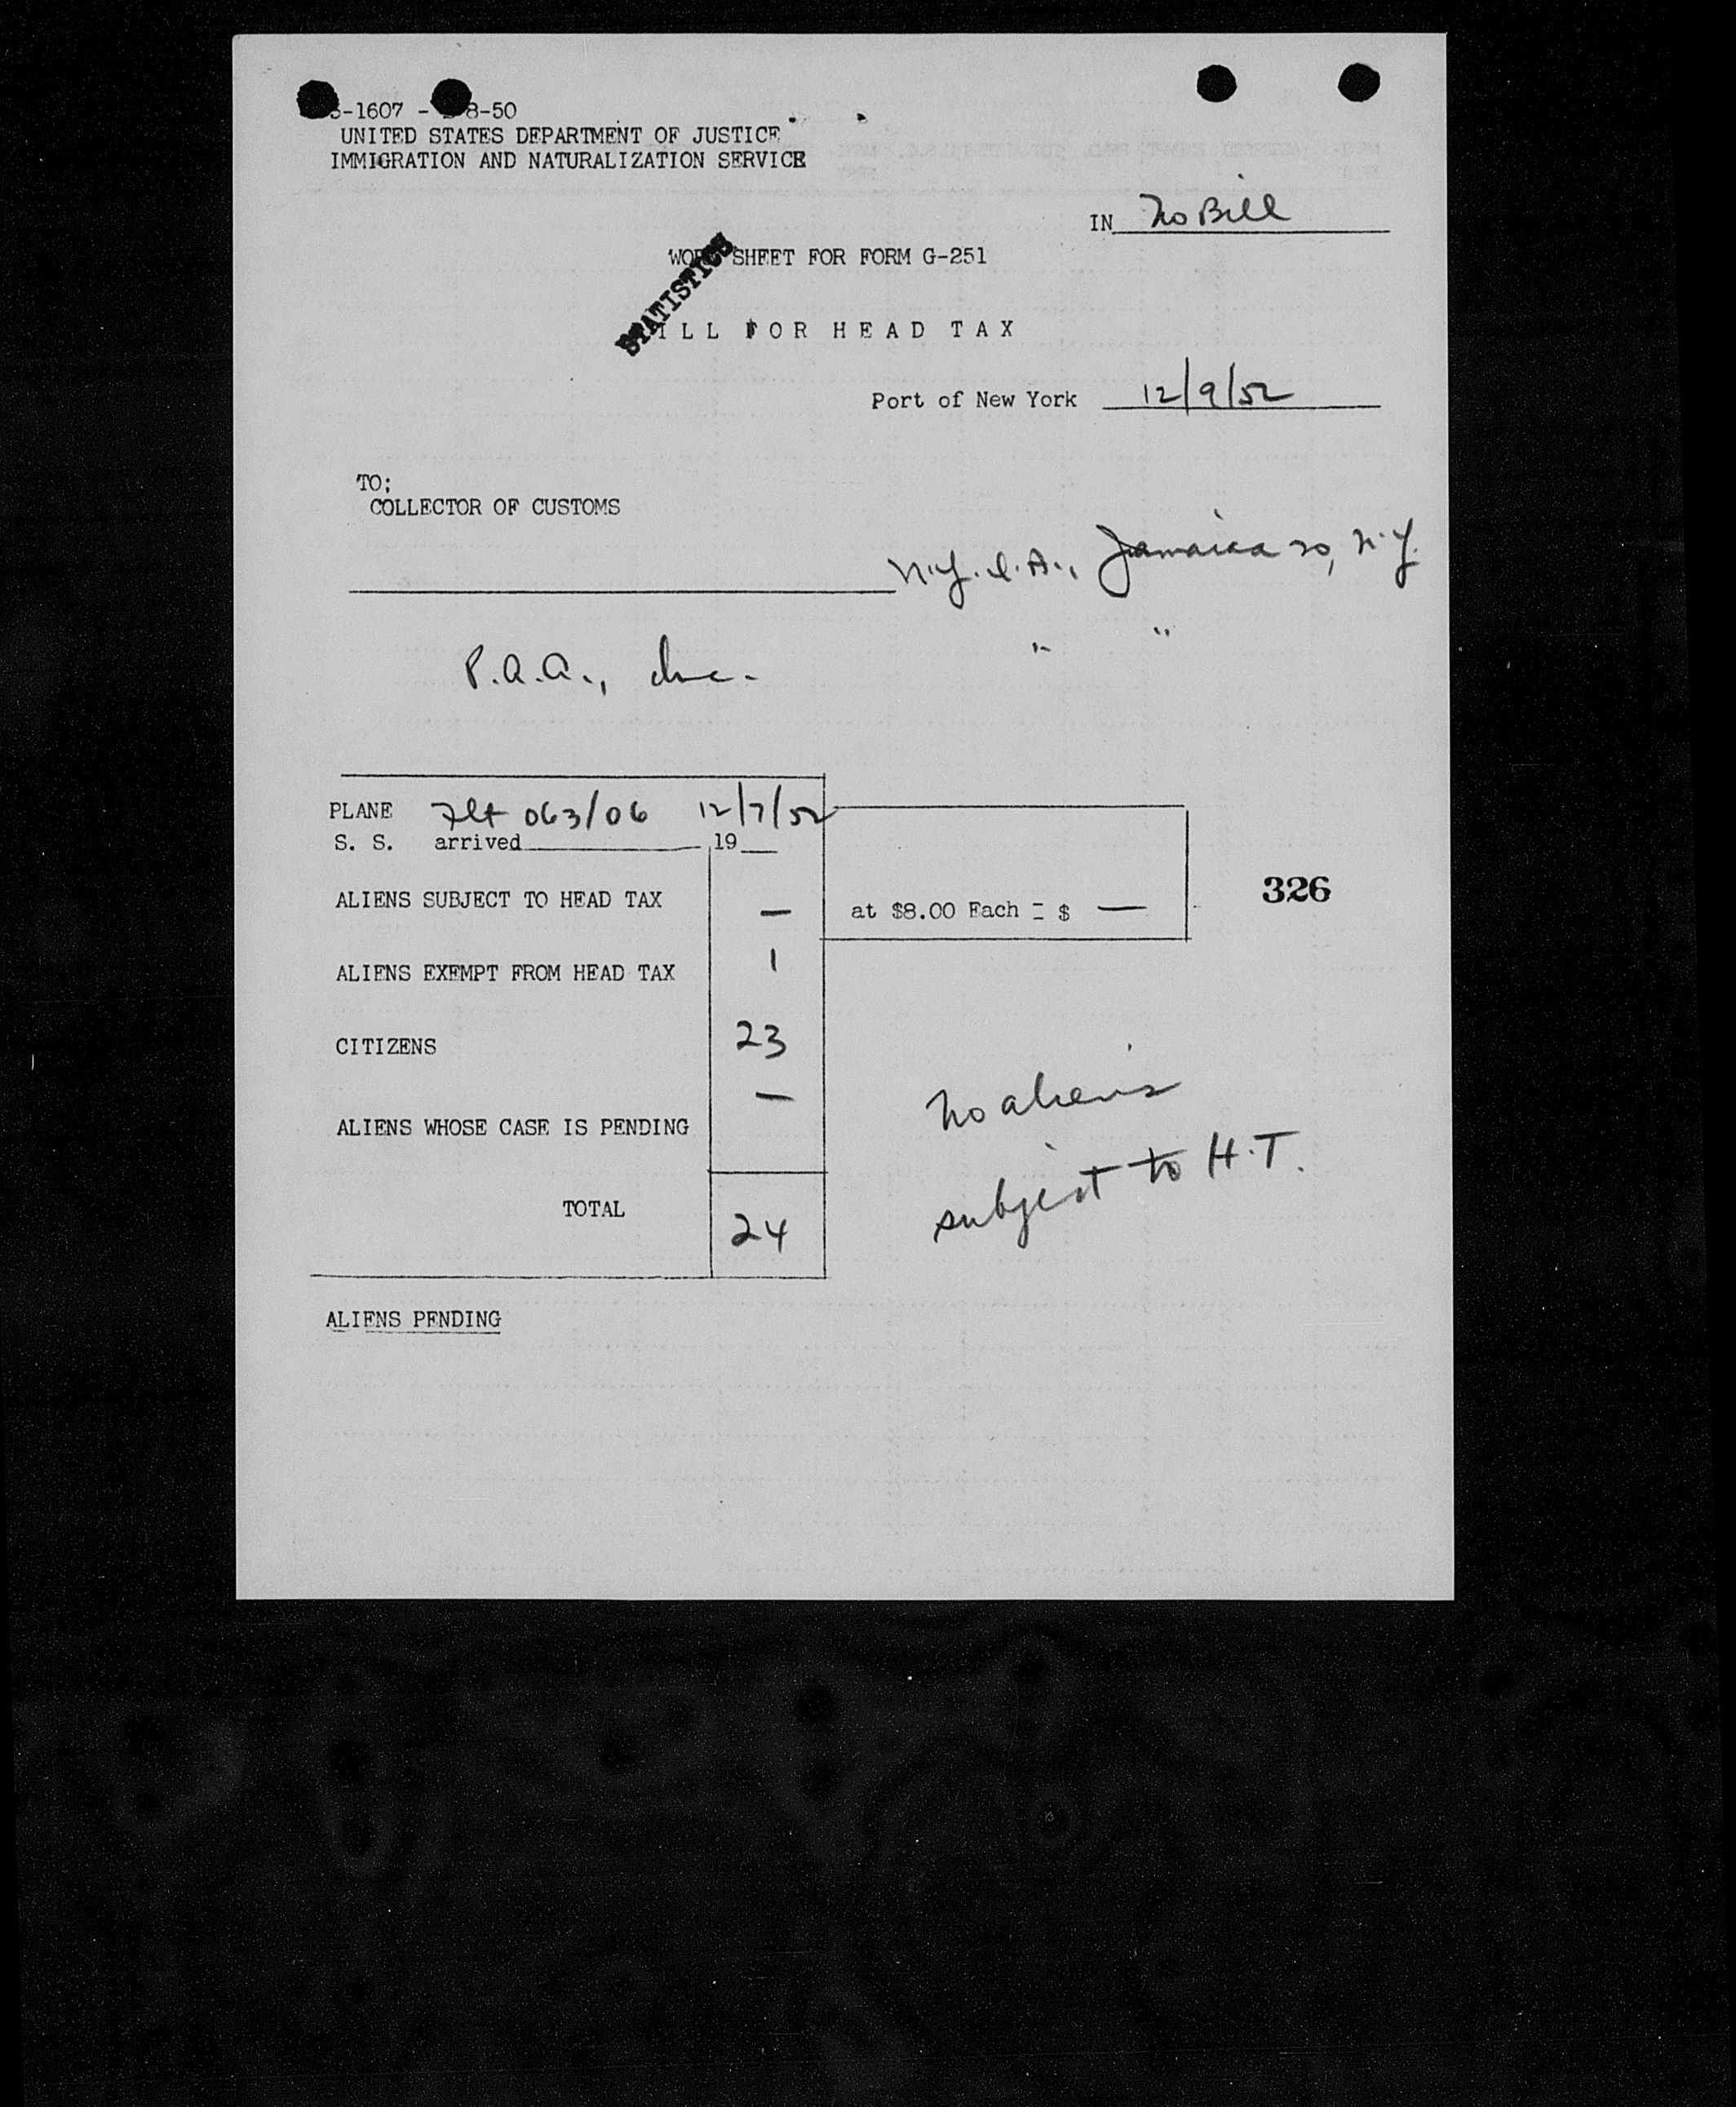 -1607 - 8-50
UNITED STATES DEPARTMENT OF JUSTICE
IMMIGRATION AND NATURALIZATION SERVICE
IN No Bill
WORK SHEET FOR FORM G-251
STATISTICS
BILL FOR HEAD TAX
Port of New York 12/9/52
TO;
COLLECTOR OF CUSTOMS
N.Y.I.A., Jamaica 20, N.Y.
P.A.A., Inc. " "
PLANE Flt 063/06 12/7/52
S. S. arrived 19
ALIENS SUBJECT TO HEAD TAX — at $8.00 Each = $ —
326
ALIENS EXEMPT FROM HEAD TAX 1
CITIZENS 23
ALIENS WHOSE CASE IS PENDING —
No aliens
subject to H.T.
TOTAL 24
ALIENS PENDING